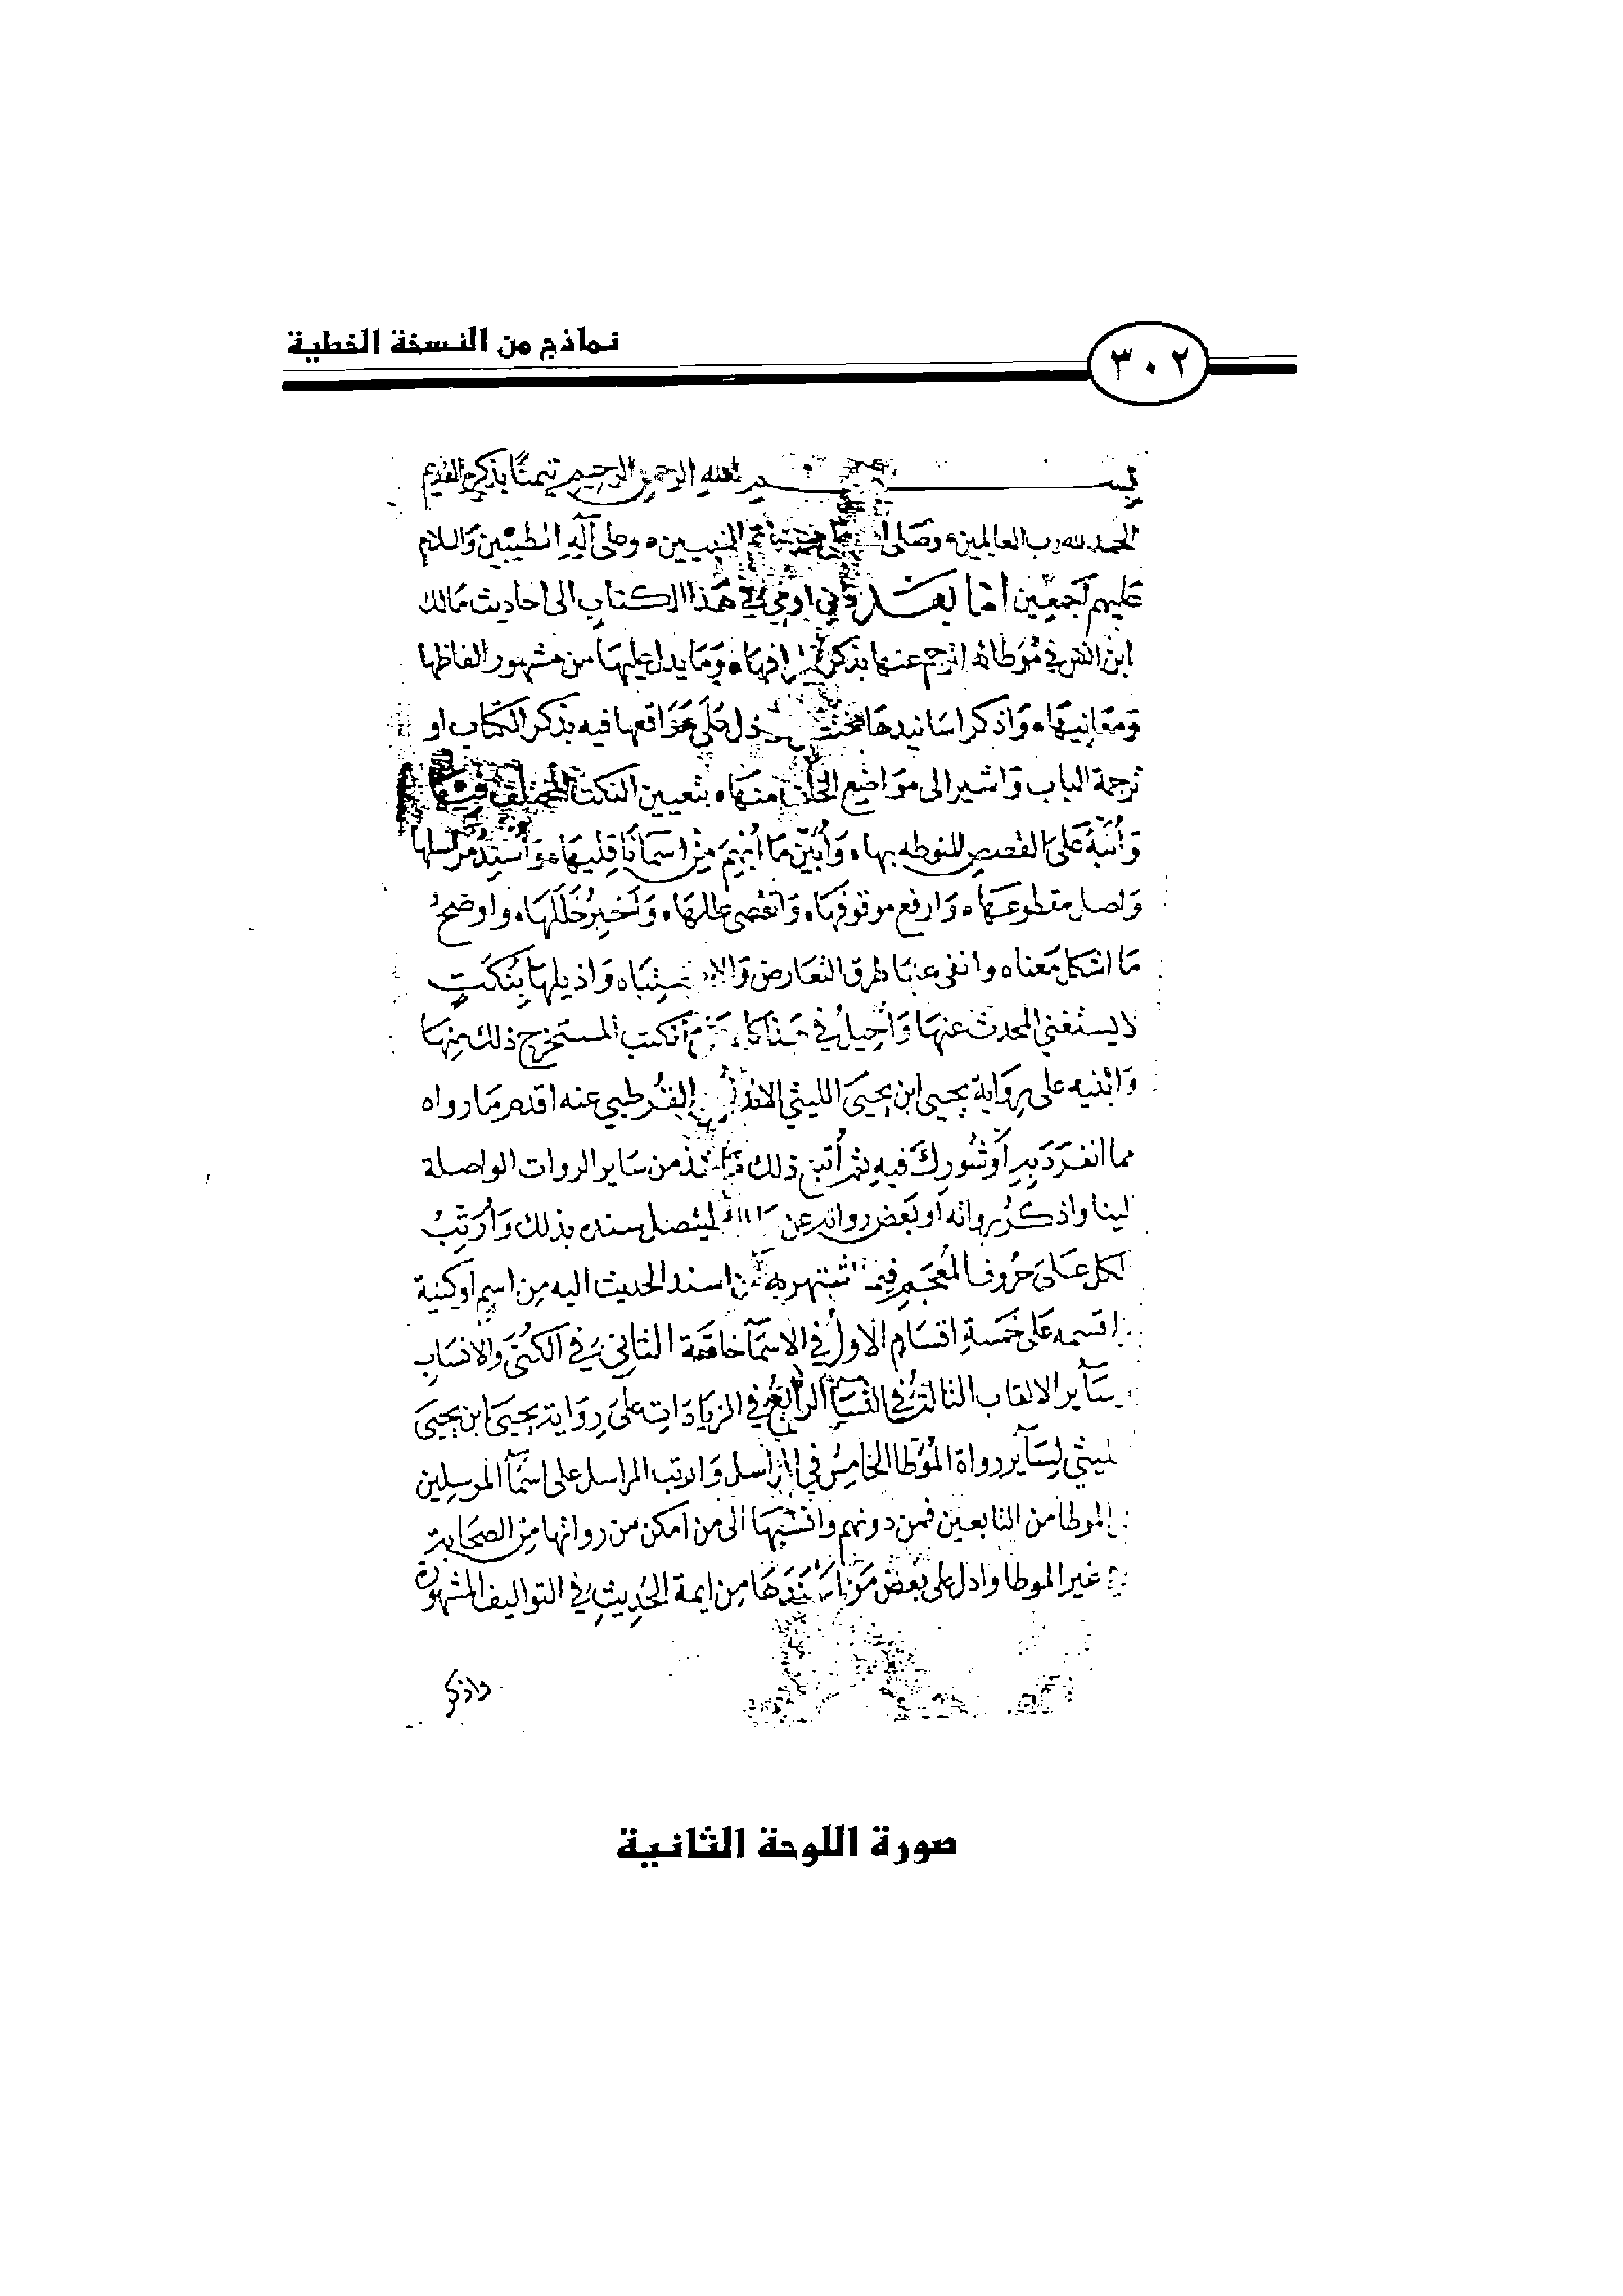 نماذج من النسخة الخطية
٣٠٢
بسم الله الرحمن الرحيم تيمنًا بذكره القديم
الحمد لله رب العالمين وصلى خاتم النبيين وعلى آله الطيبين والسلام
عليهم أجمعين أما بعد فاني اومي في هذا الكتاب الى احاديث مالك
ابن انس في موطائه اترجم عنها بذكر اطرافها وما يدل عليها من مشهور الفاظها
ومعانيها واذكر اسانيدها ادل على مواقعها فيه بذكر الكتاب او
ترجمة الباب واشير الى مواضع الخلف منها بتعيين النكت المختلف فيها
وأنبه على القصص المنوطه بها وأبين ما أبهم من اسماء ناقليها وأسند مرسلها
واصل مقطوعها وارفع موقوفها واتقصى عللها وأخبر خللها واوضح
ما اشكل معناه وانفي عنها طرق التعارض والاشتباه واذيلها بنكت
لا يستغني المحدث عنها وأحيل في المستخرج ذلك منها
وابنيه على رواية يحيى ابن يحيى الليثي الاندلسي القرطبي عنه اقدم ما رواه
مما انفرد به أو شورك فيه ثم أتبع ذلك ما شذ من ساير الروات الواصلة
لينا واذكر رواته أو بعض رواته عن ليتصل سنده بذلك وأرتب
لكل على حروف المعجم فيما اشتهر به من اسند الحديث اليه من اسم او كنية
اقسمه على خمسة اقسام الاول في الاسماء خاصة الثاني في الكنى والانساب
ساير الالقاب الثالث في النساء الرابع في الزيادات على رواية يحيى ابن يحيى
ليثي لساير رواة الموطا الخامس في المراسل وارتب المراسل على اسماء المرسلين
الموطا من التابعين فمن دونهم وانسبها الى من امكن من رواتها من الصحابة
غير الموطا وادل على بعض من اسندها من ايمة الحديث في التواليف المشهورة
واذكر
صورة اللوحة الثانية